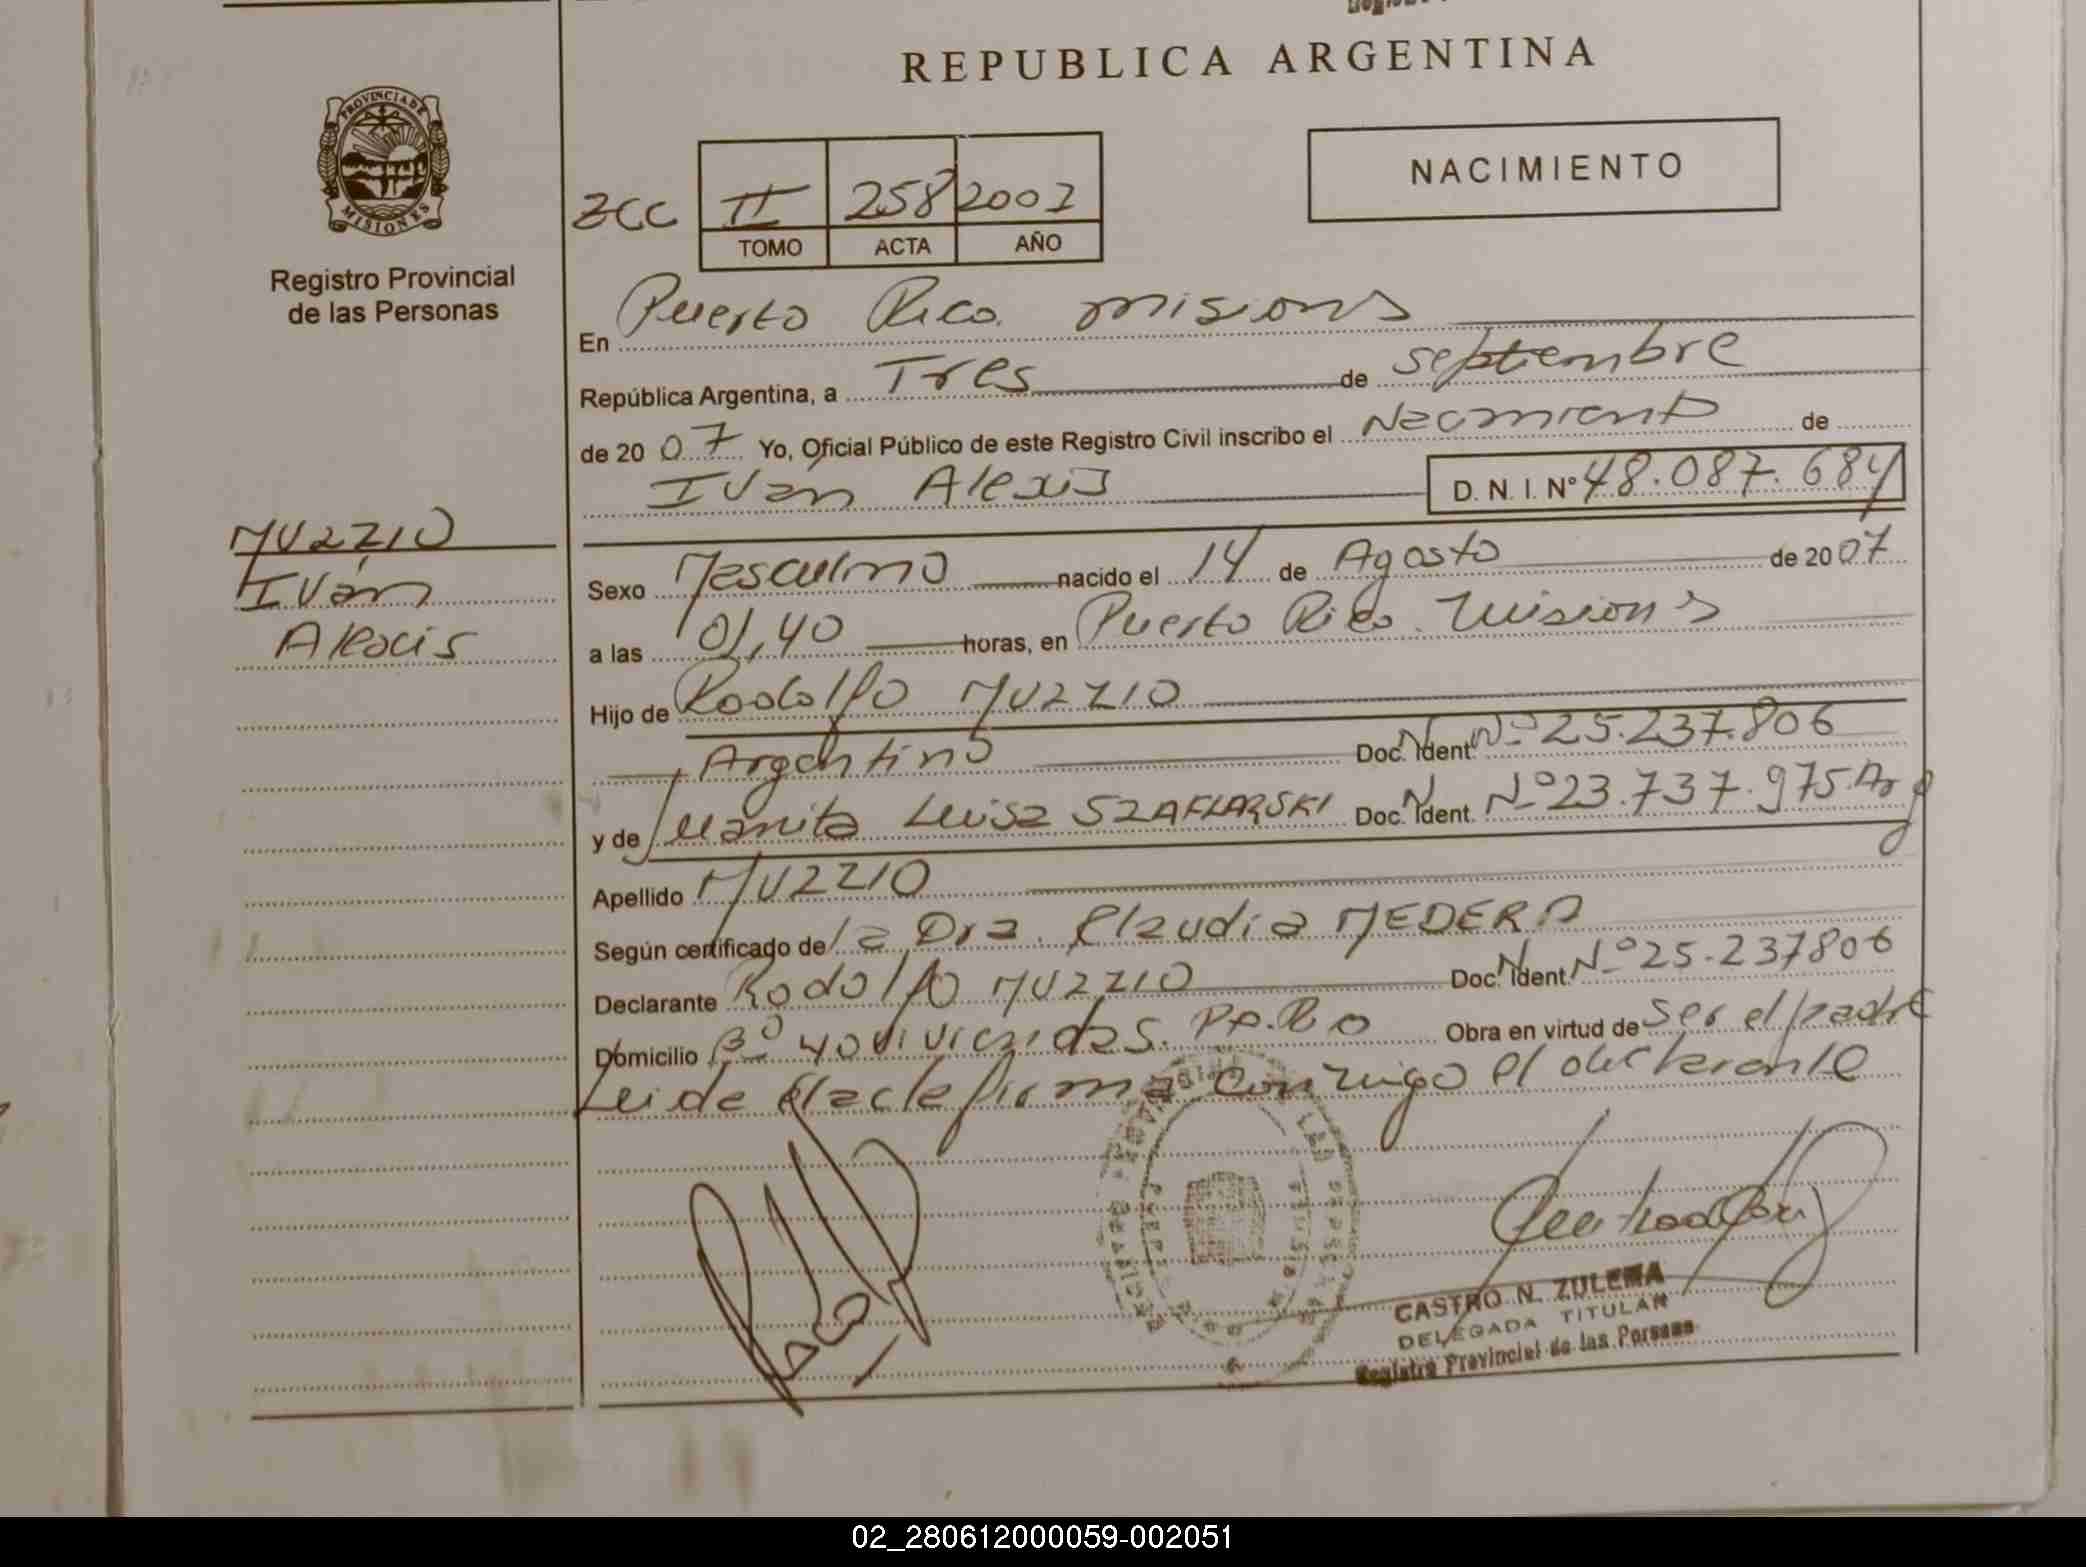 REPUBLICA ARGENTINA
PROVINCIA DE
MISIONES
Registro Provincial
de las Personas
NACIMIENTO
II 258 2007
TOMO ACTA AÑO
En Puerto Rico misiones
República Argentina, a Tres de septiembre
de 2007 Yo, Oficial Público de este Registro Civil inscribo el Nacimiento de
Iván Alexis D. N. I. Nº 48.087.684
MUZZIO
Iván
Alexis
Sexo Masculino nacido el 14 de Agosto de 2007
a las 01,40 horas, en Puerto Rico. Misiones
Hijo de Rodolfo MUZZIO
Argentino Doc. N. Ident. Nº 25.237.806
y de Marita Luisa SZAFLARSKI Doc. N. Ident. Nº 23.737.975. Arg
Apellido MUZZIO
Según certificado de la Dra. Claudia MEDERA
Declarante Rodolfo MUZZIO Doc. N. Ident. Nº 25.237806
Domicilio Bº 40 viviendas. Obra en virtud de ser el padre
Leida el acta firma conmigo el declarante
CASTRO N. ZULEMA
DELEGADA TITULAR
Registro Provincial de las Personas
02_280612000059-002051